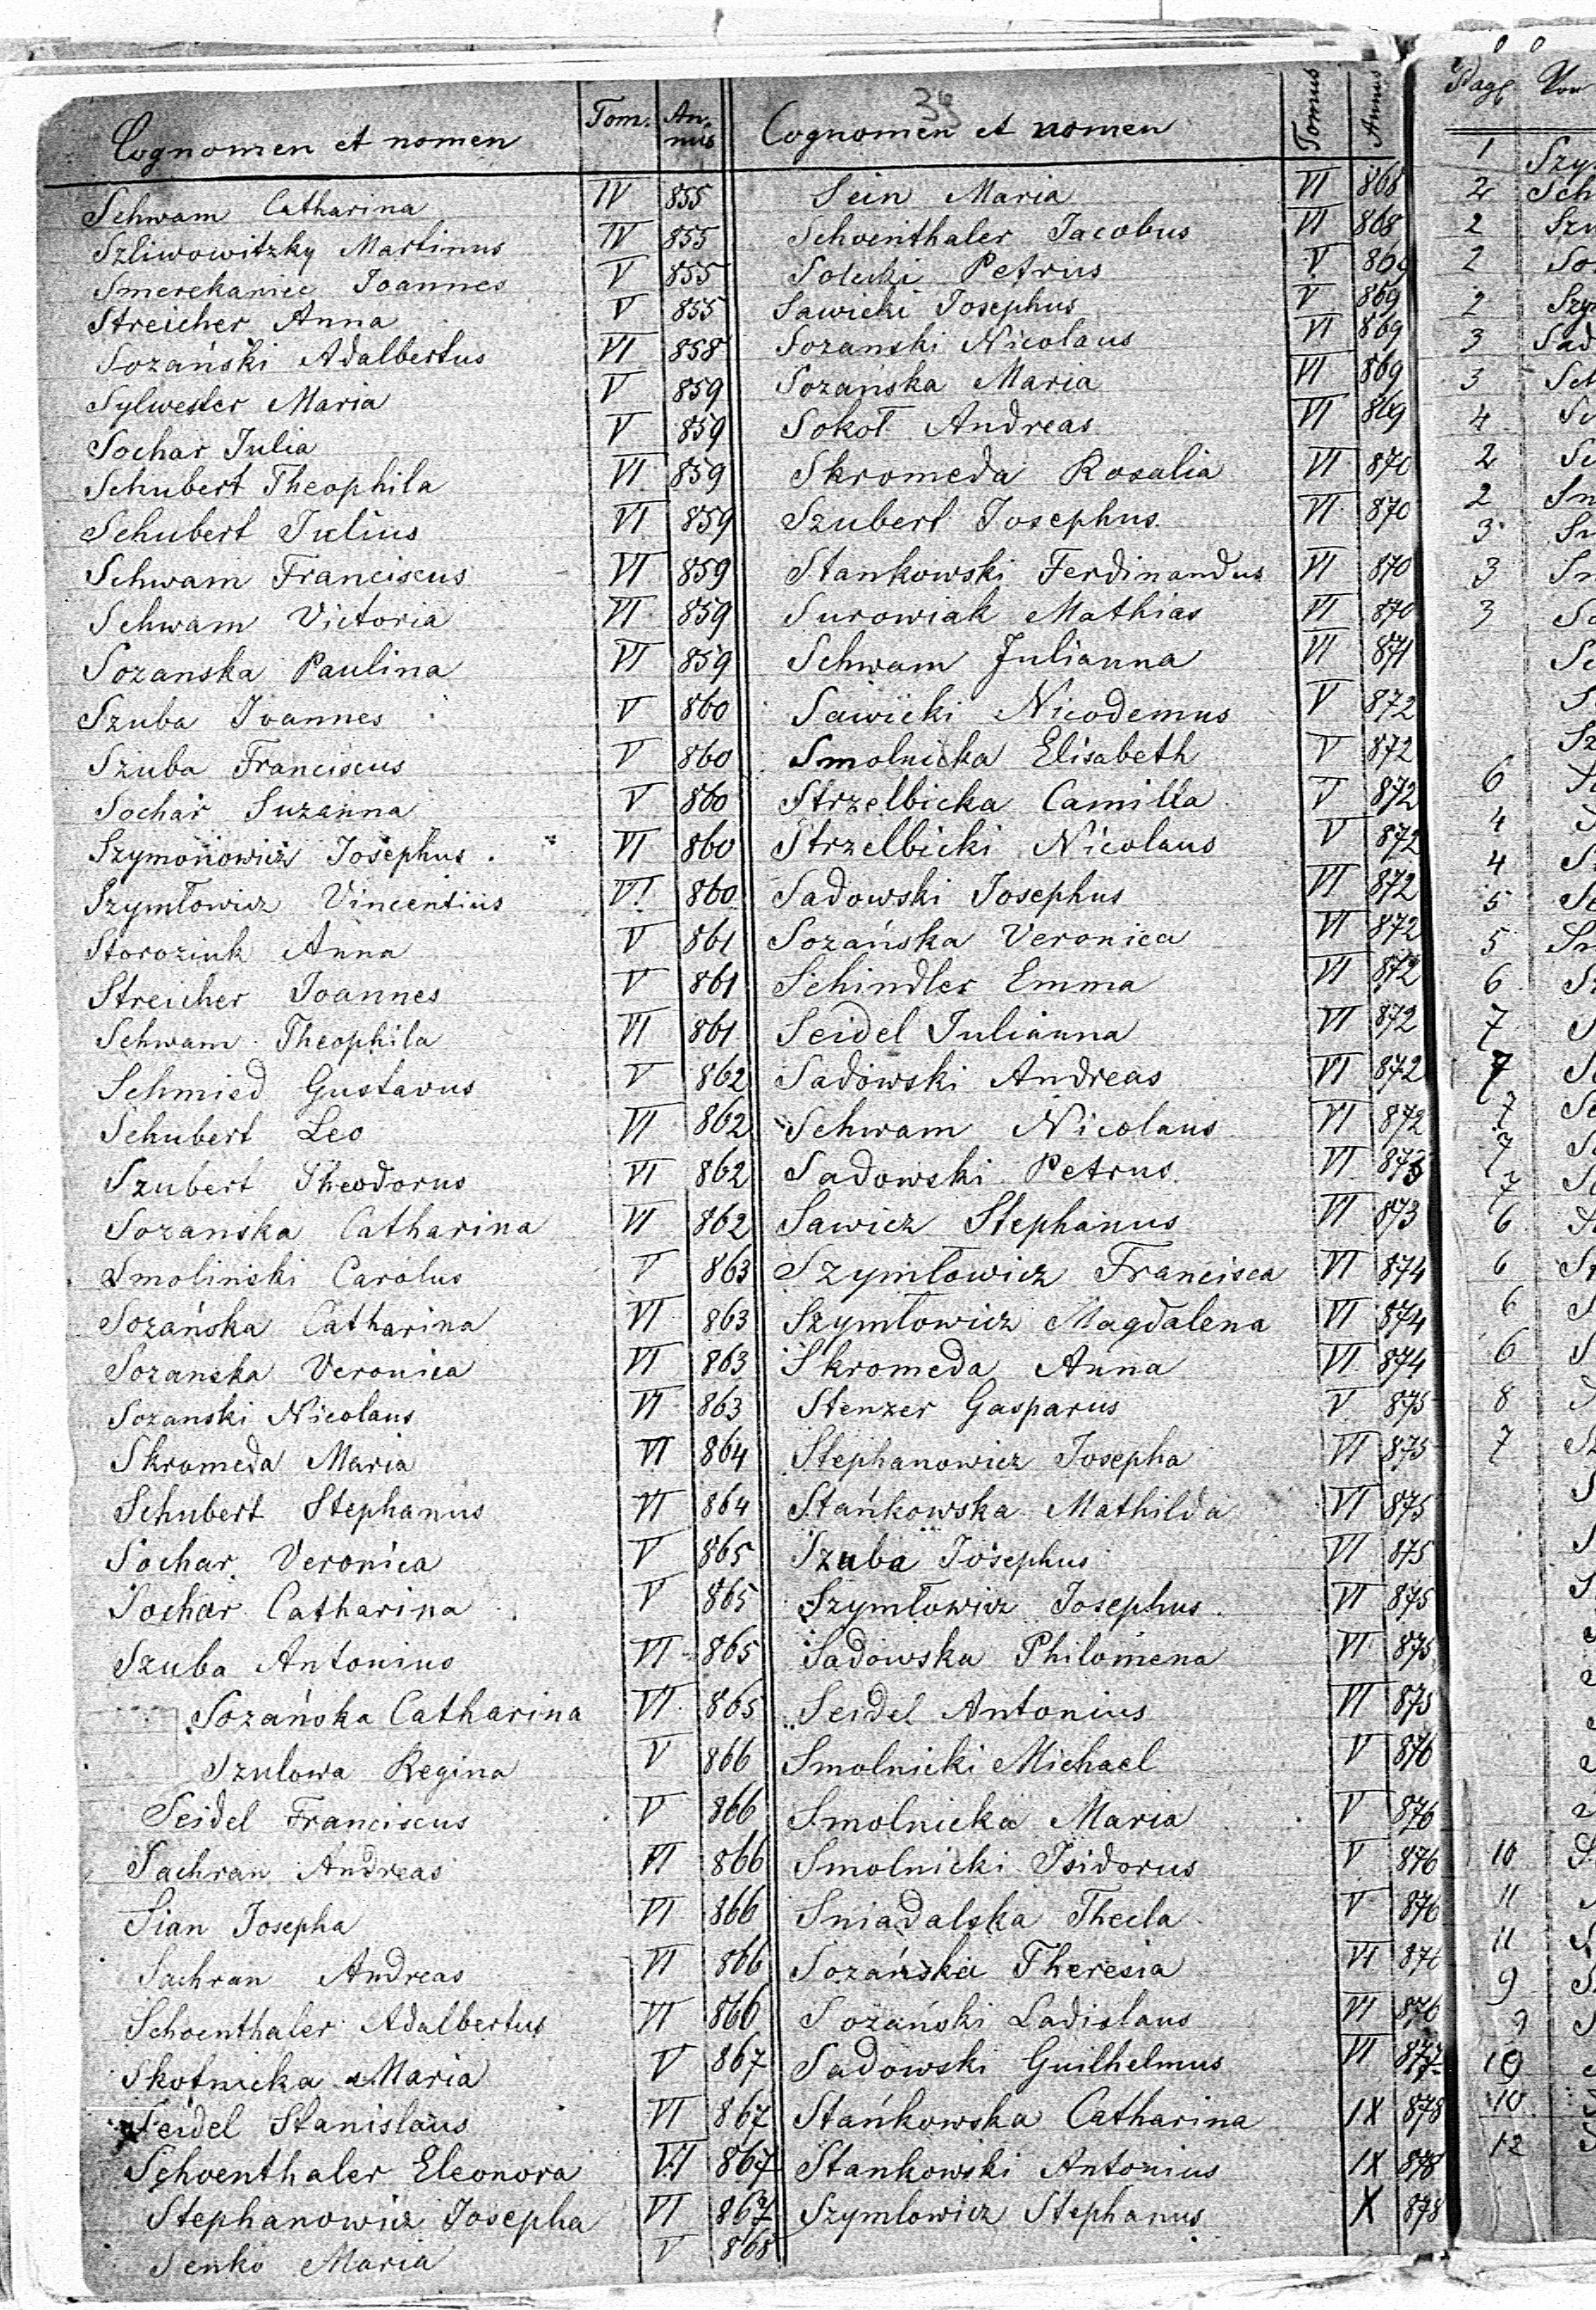 39
Cognomen et nomen Tom. Annus
Schwam Catharina IV 855
Szliwowitzky Martinus IV 855
Smerekaniec Joannes V 855
Streicher Anna V 855
Sozański Adalbertus VI 858
Sylwester Maria V 859
Sochar Julia V 859
Schubert Theophila VI 859
Schubert Julius VI 859
Schwam Franciscus VI 859
Schwam Victoria VI 859
Sozanska Paulina VI 859
Szuba Joannes V 860
Szuba Franciscus V 860
Sochar Suzanna V 860
Szymonowicz Josephus VI 860
Szymłowicz Vincentius VI 860
Storoziuk Anna V 861
Streicher Joannes V 861
Schwam Theophila VI 861
Schmied Gustavus V 862
Schubert Leo VI 862
Szubert Theodorus VI 862
Sozanska Catharina VI 862
Smoliński Carolus V 863
Sozańska Catharina VI 863
Sozanska Veronica VI 863
Sozanski Nicolaus VI 863
Skromeda Maria VI 864
Schubert Stephanus VI 864
Sochar Veronica V 865
Sochar Catharina V 865
Szuba Antonius VI 865
Sozańska Catharina VI 865
Szulowa Regina V 866
Seidel Franciscus V 866
Sachran Andreas VI 866
Sian Josepha VI 866
Sachran Andreas VI 866
Schoenthaler Adalbertus VI 866
Skotnicka Maria V 867
Seidel Stanislaus VI 867
Schoenthaler Eleonora VI 867
Stephanowicz Josepha VI 867
Senko Maria V 868
Cognomen et nomen Tomus Annus
Sein Maria VI 868
Schoenthaler Jacobus VI 868
Solecki Petrus V 869
Sawicki Josephus V 869
Sozanski Nicolaus VI 869
Sozańska Maria VI 869
Sokoł Andreas VI 869
Skromeda Rosalia VI 870
Szubert Josephus VI 870
Stankowski Ferdinandus VI 870
Surowiak Mathias VI 870
Schwam Julianna VI 871
Sawicki Nicodemus V 872
Smolnicka Elisabeth V 872
Strzelbicka Camilla V 872
Strzelbicki Nicolaus V 872
Sadowski Josephus VI 872
Sozańska Veronica VI 872
Schindler Emma VI 872
Seidel Julianna VI 872
Sadowski Andreas VI 872
Schwam Nicolaus VI 872
Sadowski Petrus VI 873
Sawicz Stephanus VI 873
Szymłowicz Francisca VI 874
Szymłowicz Magdalena VI 874
Skromeda Anna VI 874
Stenzer Gasparus V 875
Stephanowicz Josepha VI 875
Stańkowska Mathilda VI 875
Szuba Josephus VI 875
Szymłowicz Josephus VI 875
Sadowska Philomena VI 875
Seidel Antonius VI 875
Smolnicki Michael V 876
Smolnicka Maria V 876
Smolnicki Isidorus V 876
Sniadalska Thecla V 876
Sozańska Theresia VI 876
Sozański Ladislaus VI 876
Sadowski Guilhelmus VI 877
Stańkowska Catharina IX 878
Stankowski Antonius IX 878
Szymlowicz Stephanus X 878
Pag.
1
2
2
2
2
3
3
4
2
2
3
3
3
6
4
4
5
5
6
7
7
7
7
7
6
6
6
6
8
7
10
11
11
9
9
10
10
12